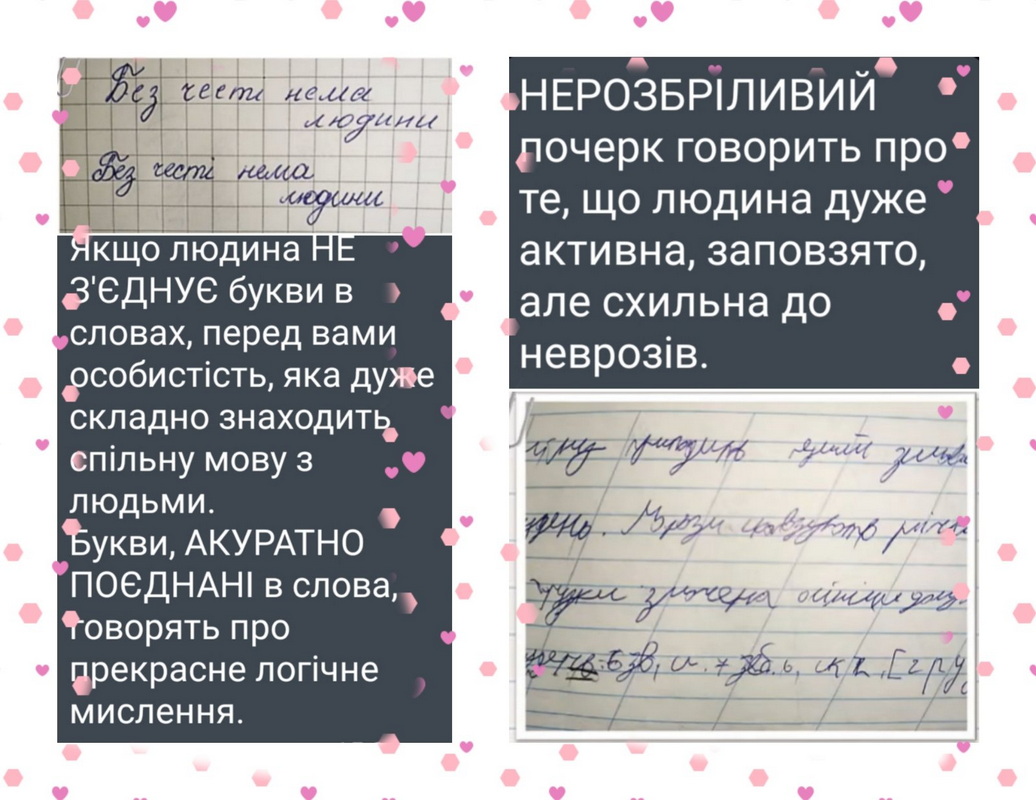 Без чести нема
людини
Без честі нема
людини
Якщо людина НЕ
З'ЄДНУЄ букви в
словах, перед вами
особистість, яка дуже
складно знаходить
спільну мову з
людьми.
Букви, АКУРАТНО
ПОЄДНАНІ в слова,
говорять про
прекрасне логічне
мислення.
НЕРОЗБРІЛИВИЙ
почерк говорить про
те, що людина дуже
активна, заповзято,
але схильна до
неврозів.
приходить
Морози сковзують річки
зб. [гру